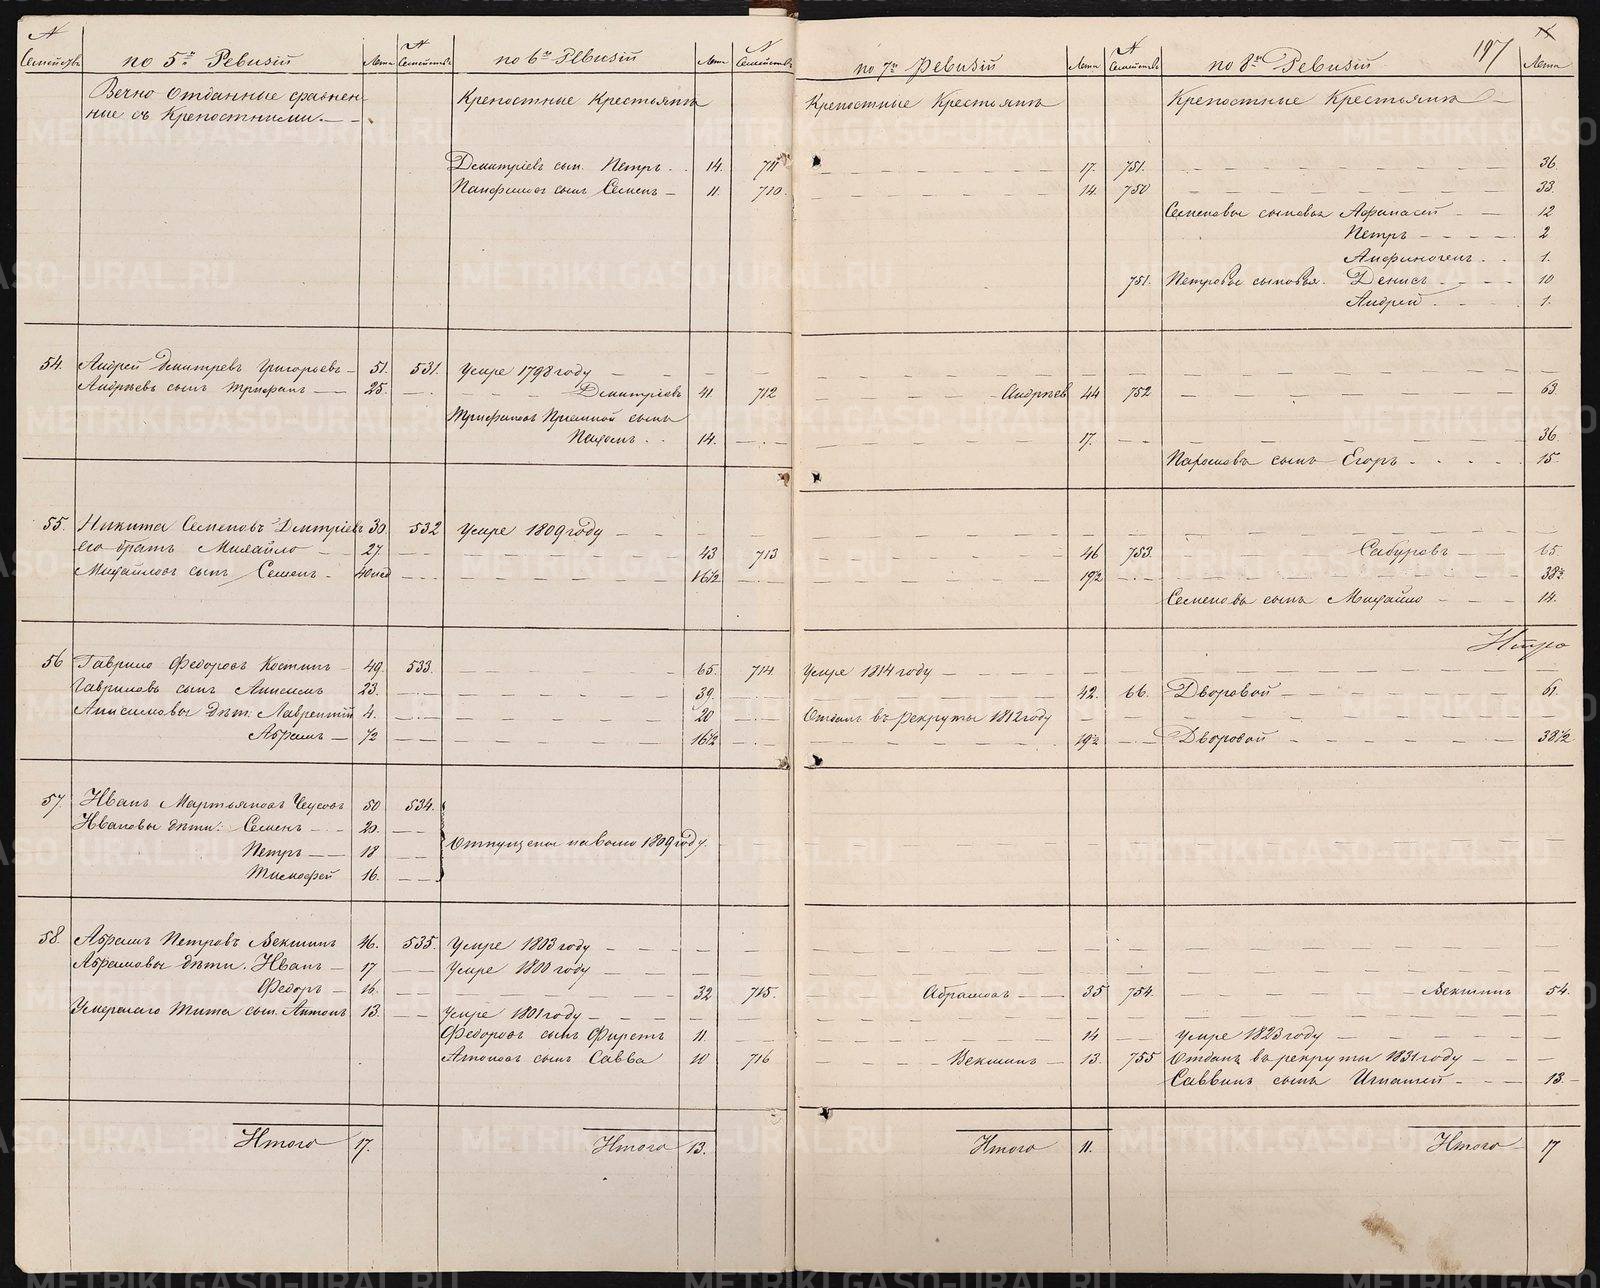 № Семействъ по 5й Ревизiи Лета № Семействъ по 6й Ревизiи Лета № Семействъ по 7й Ревизiи Лета № Семействъ по 8й Ревизiи 197 Лета
Вечно Отданные сравнен- Крепостные Крестьяна Крепостные Крестьяна Крепостные Крестьяна
ные съ Крепостными.
Дмитрiевъ сын. Петръ 14. 711 17. 751. 36
Панфиловъ сынъ Семенъ 11. 710. 14. 750 33.
Семеновы сыновья Афанасей 12
Петръ 2
Анфиногенъ 1.
751. Петровы сыновья. Денисъ 10
Андрей 1.
54. Андрей Дмитревъ Григорьевъ 51. 531. Умре 1798 году
Андреевъ сынъ Трифанъ 25. Дмитрiевъ 41. 712 Андреев 44 752 63.
Трифановъ Прiемной сынъ
Пахомъ 14. 17. 36.
Пахомовъ сынъ Егоръ 15.
55. Никита Семеновъ Дмитрiевъ 30 532 Умре 1809 году
его братъ Михайло 27. 43 713 46 753. Сабуровъ 65.
Михайловъ сынъ Семенъ 40 нед 16 1/2 19 1/2 38 1/2
Семеновъ сынъ Михайло 14.
56 Гаврило Федоровъ Костинъ 49. 533. 65. 714. Умре 1814 году
Гавриловъ сынъ Анисимъ 23. 39. 42. 66. Дворовой 61.
Анисимовы дѣт. Лаврентiй 4. 20 Отданъ въ рекруты 1812 году
Абрамъ 1/2 16 1/2 19 1/2 Дворовой 38 1/2
57. Иванъ Мартьяновъ Чусовъ 50 534.
Ивановы дѣти: Семенъ 20. Отпущены на волю 1809 году.
Петръ 18
Тимофей 16.
58. Абрамъ Петровъ Векшинъ 46. 535. Умре 1803 году
Абрамовы дѣти. Иванъ 17 Умре 1800 году
Федоръ 16. 32 715. Абрамовъ 35 754. Векшинъ 54.
Умершаго Тита сын. Антонъ 13. Умре 1801 году
Федоровъ сынъ Фирстъ 11. 14 Умре 1823 году
Антоновъ сынъ Савва 10 716 Векшинъ 13. 755 Отданъ въ рекруты 1831 году
Саввинъ сынъ Игнатей 13.
Итого 17. Итого 13. Итого 11. Итого 17
METRIKI.GASO-URAL.RU